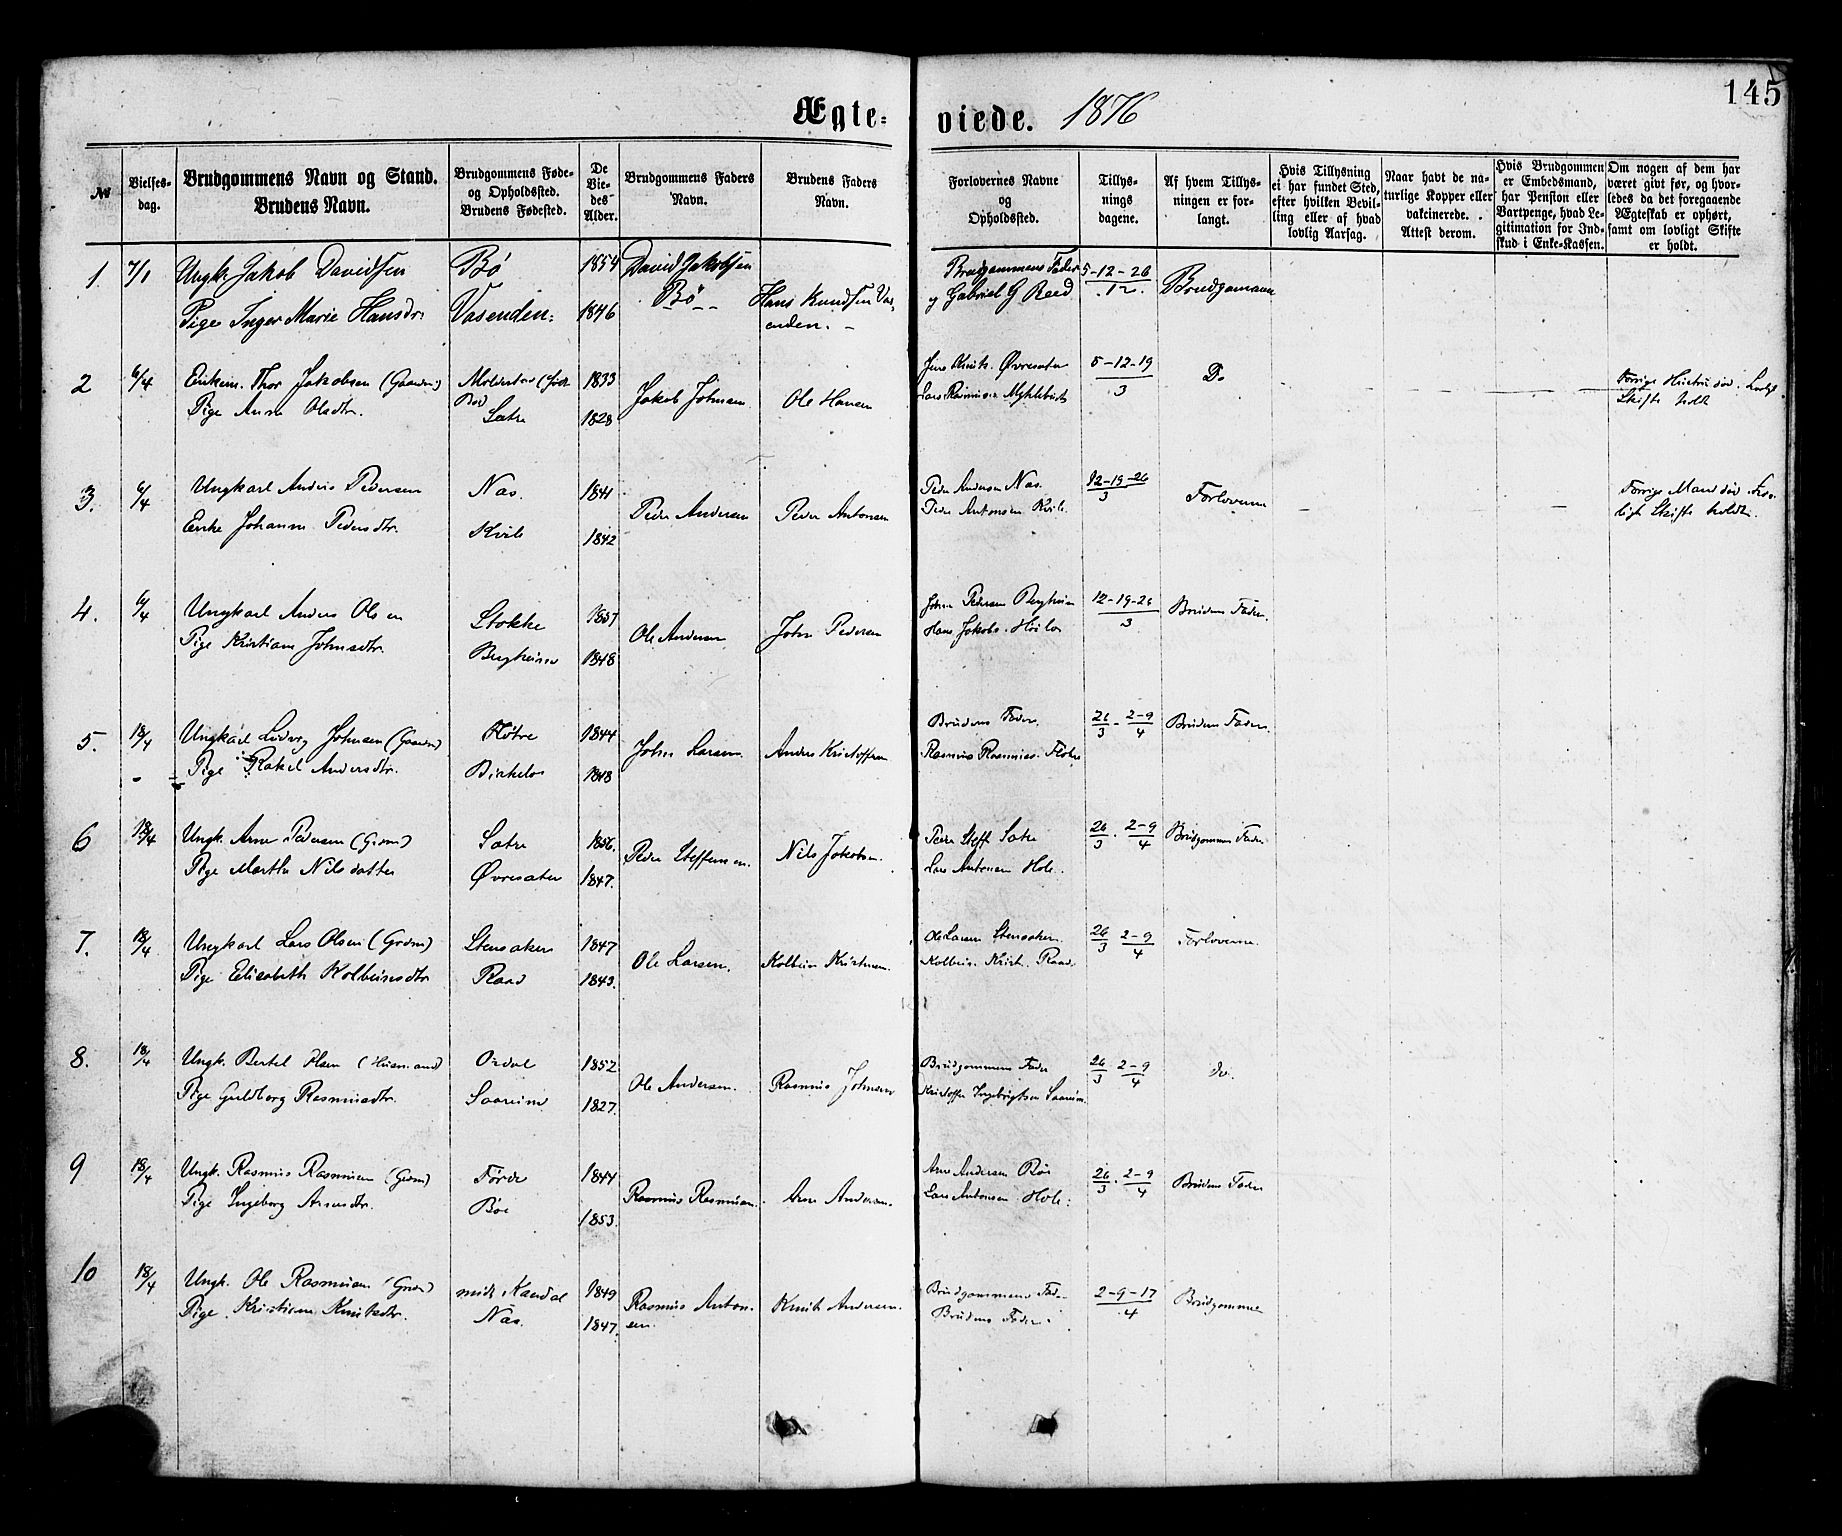 145
Ægteviede. 1876
№
Vielsesdag.
Brudgommens Navn og Stand.
Brudens Navn.
Brudgommens Føde- og Opholdssted.
Brudens Fødested.
De Viedes Alder.
Brudgommens Faders Navn.
Brudens Faders Navn.
Forlovernes Navne og Opholdsted.
Tillysningsdagene.
Af hvem Tillysningen er forlangt.
Hvis Tillysning ei har fundet Sted, efter hvilken Bevilling eller af hvad lovlig Aarsag.
Naar havt de naturlige Kopper eller vakcinerede. Attest derom.
Hvis Brudgommen er Embedsmand, har Pension eller Vartpenge, hvad Legitimation for Indskud i Enke-Kassen.
Om nogen af dem har været givt før, og hvorledes da det foregaaende Ægteskab er ophørt, samt om lovligt Skifte er holdt.
1 7/1 Ungk. Jakob Davidsen Bø 1854 David Jakobsen Brudgommens Fader 5-12-26
Pige Inger Marie Hansdr. Vasenden: 1846 Bø Hans Knudsen Vasenden. og Gabriel G Reed 12. Brudgommen
2 6/4 Enkem. Thor Jakobsen (Gaardm) 1833 Jakob Johnsen Ole Hansen Øvresæter 5-12-19 Do Forrige Hustru død. Lovligt
Pige Anne Olsdtr. Sætre 1828 Lars Rasmusen Myklebust 3 Skifte holdt
3. 6/4 Ungkarl Anders Pedersen Næs. 1841 Peder Andersen Peder Antonsen Peder Andersen Næs. 12-19-26 Forloverne Forrige Mand død. Lovligt
Enke Johanne Pedersdtr. Kvile 1842 Peder Antonsen Kvile. 3 Skifte holdt.
4. 6/4 Ungkarl Anders Olsen Stokke Ole Andersen John Pedersen John Pedersen Bergheim 12-19-26 Brudens Fader.
Pige Kristiane Johnsdtr. Bergheim 1848 Hans Jakobs. 3
5. 18/4 Ungkarl Ludvig Johnsen (Gaardm) Fløtre 1844 John Larsen Anders Kristoffersen Brudens Fader. 26/3 - 2-9/4 Brudens Fader.
Pige Rakel Andersdtr. Birkelo 1848 Rasmus Rasmuss. Fløtre
6 18/4 Ungk. Arne Pedersen (Grdm) Sætre 1856. Peder Steffensen. Nils Jakobsen. Peder Steff. Sætre 26/3 . 2-9/4 Brudgommens Fader.
Pige Marthe Nilsdatter Øvresæter 1847. Lars Antonsen Hole.
7. 18/4 Ungkarl Lars Olsen (Grdm) Stensaker 1847 Ole Larsen. Kolbein Kristensen. Ole Larsen Stensaker. 26/3 2-9/4 Forloverne.
Pige Elisabeth Kolbeinsdtr Raad 1843. Kolbein Krist. Raad
8. 18/4 Ungk. Bertel Olsen (Husmand) 1852 Ole Andersen. Rasmus Johnsen Brudgommens Fader 26/3 2-9/4 do.
Pige Guldborg Rasmusdtr. Saareim 1827. Kristoffer Ingebrigtsen Saareim.
9 18/4 Ungk. Rasmus Rasmusen (Grdm) Førde 1844 Rasmus Rasmusen. Arne Andersen. Arne Andersen Bøe 26/3 . 2-9/4 Brudens Fader
Pige Ingeborg Arnesdtr. Bøe 1853. Lars Antonsen Hole.
10 18/4 Ungk. Ole Rasmusen (Grdm) Kandal 1849 Rasmus Antonsen. Knut Andersen. Brudgommens Fader 2-9-17 Brudgommen
Pige Kristiane Knutsdtr. Næs. 1847. Brudens Fader. 4